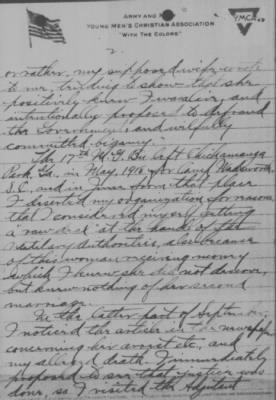 ARMY AND
YOUNG MEN'S CHRISTIAN ASSOCIATION
"WITH THE COLORS"
YMCA
2
or rather, my supposed wife wrote
to me, tending to show that she
positively knew I was alive, and
intentionally proposed to defraud
the Government, and wilfully
committed bigamy.
The 17th M.G. Bn left Chickamauga
Park, Ga. in May, 1918, for Camp Wadsworth,
S.C. and in June from that place
I deserted my organization for reasons
that I considered myself getting
a "raw deal" at the hands of the
Military Authorities, also because
of this woman receiving money
which I knew she did not deserve,
but knew nothing of her second
marriage.
In the latter part of September,
I noticed the articles in the newspaper
concerning her arrest etc., and
my alleged death. I immediately
proposed to see that justice was
done, so I visited the Adjutant